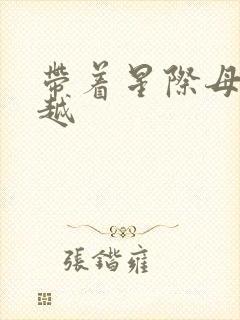 帶着星際母
越
張鍇雍